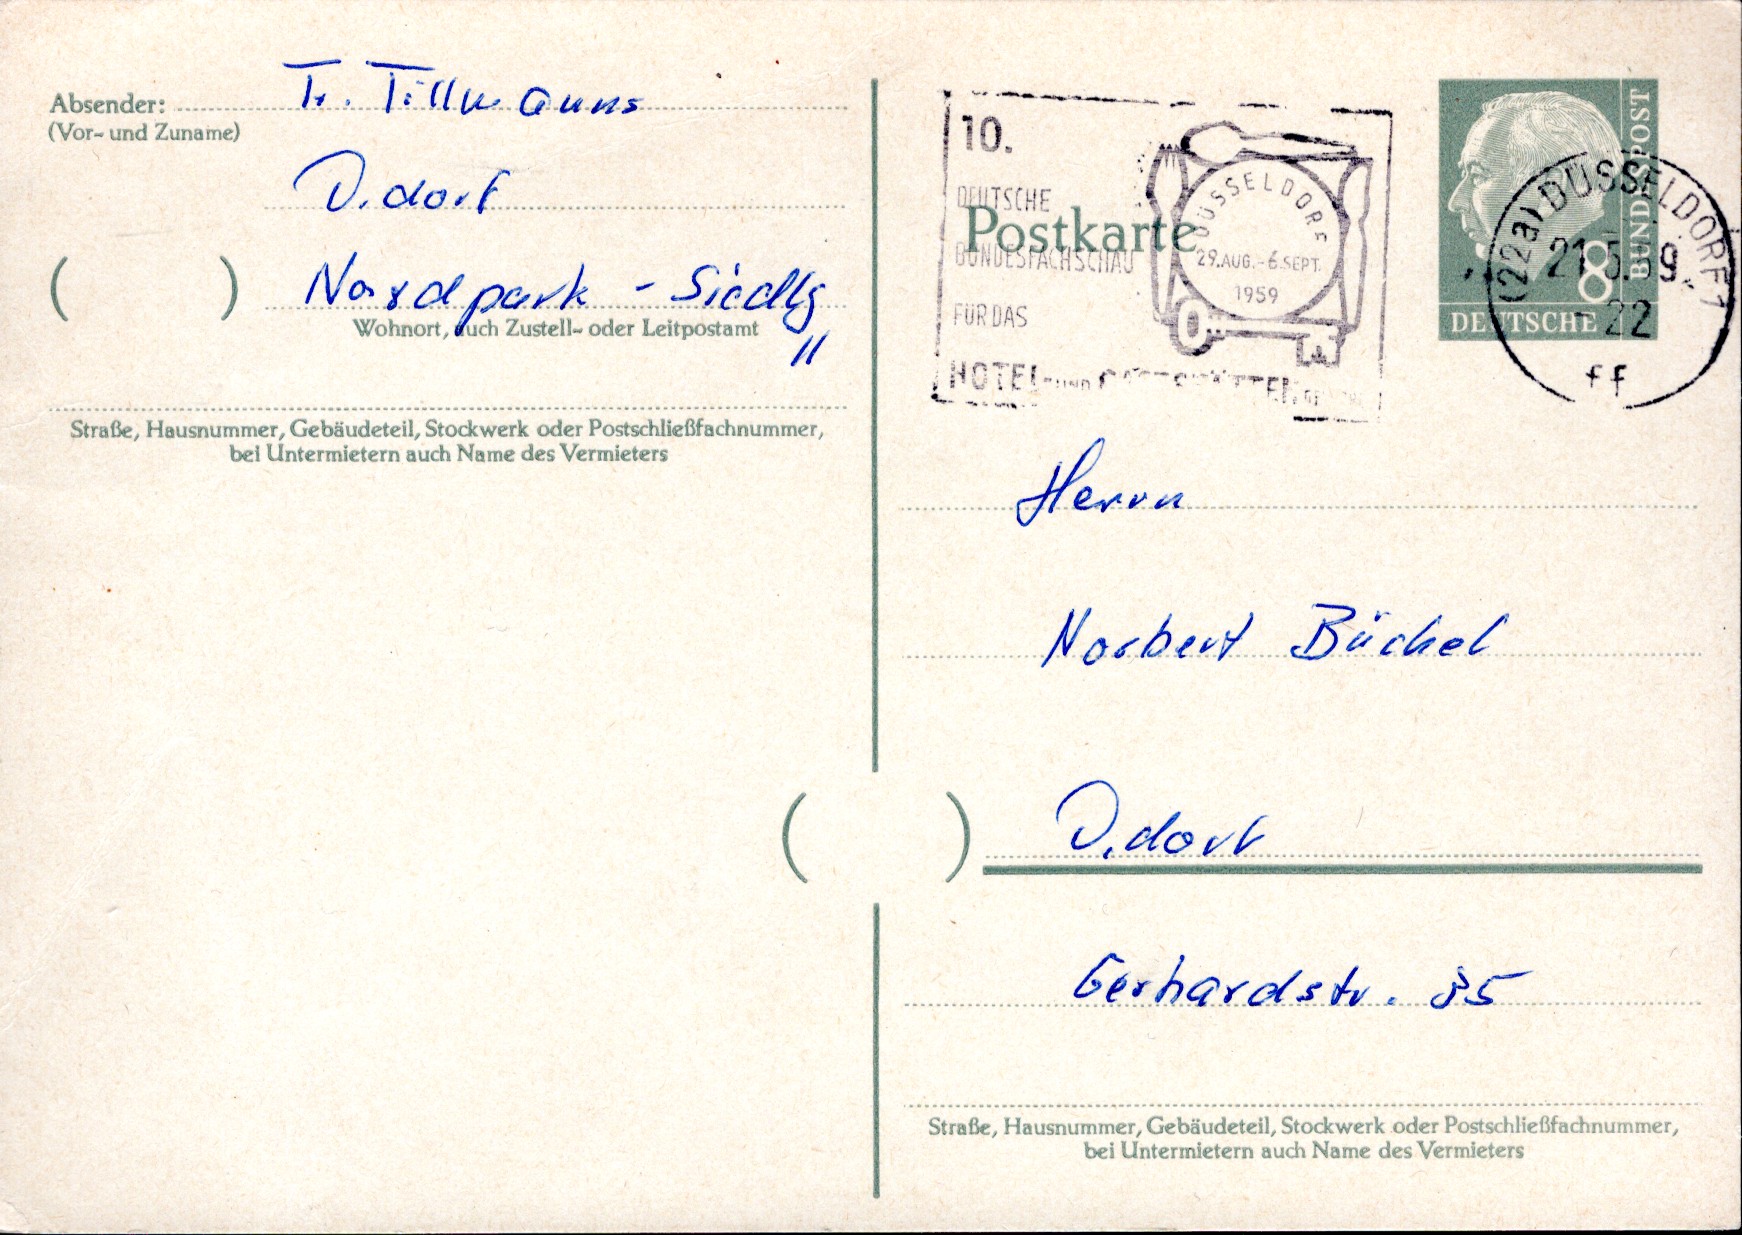 Absender: Fr. Tillmanns
(Vor- und Zuname)
D.dorf
( ) Nordpark - Siedlg
Wohnort, auch Zustell- oder Leitpostamt
11
Straße, Hausnummer, Gebäudeteil, Stockwerk oder Postschließfachnummer,
bei Untermietern auch Name des Vermieters
10.
DEUTSCHE
BUNDESFACHSCHAU
FÜR DAS
HOTEL- UND GASTSTÄTTEN
DÜSSELDORF
29.AUG.-6.SEPT.
1959
Postkarte
8
DEUTSCHE
BUNDESPOST
(22a) DÜSSELDORF 1
21.5.59
-22
ff
Herrn
Norbert Büchel
( ) D.dorf
Gerhardstr. 85
Straße, Hausnummer, Gebäudeteil, Stockwerk oder Postschließfachnummer,
bei Untermietern auch Name des Vermieters